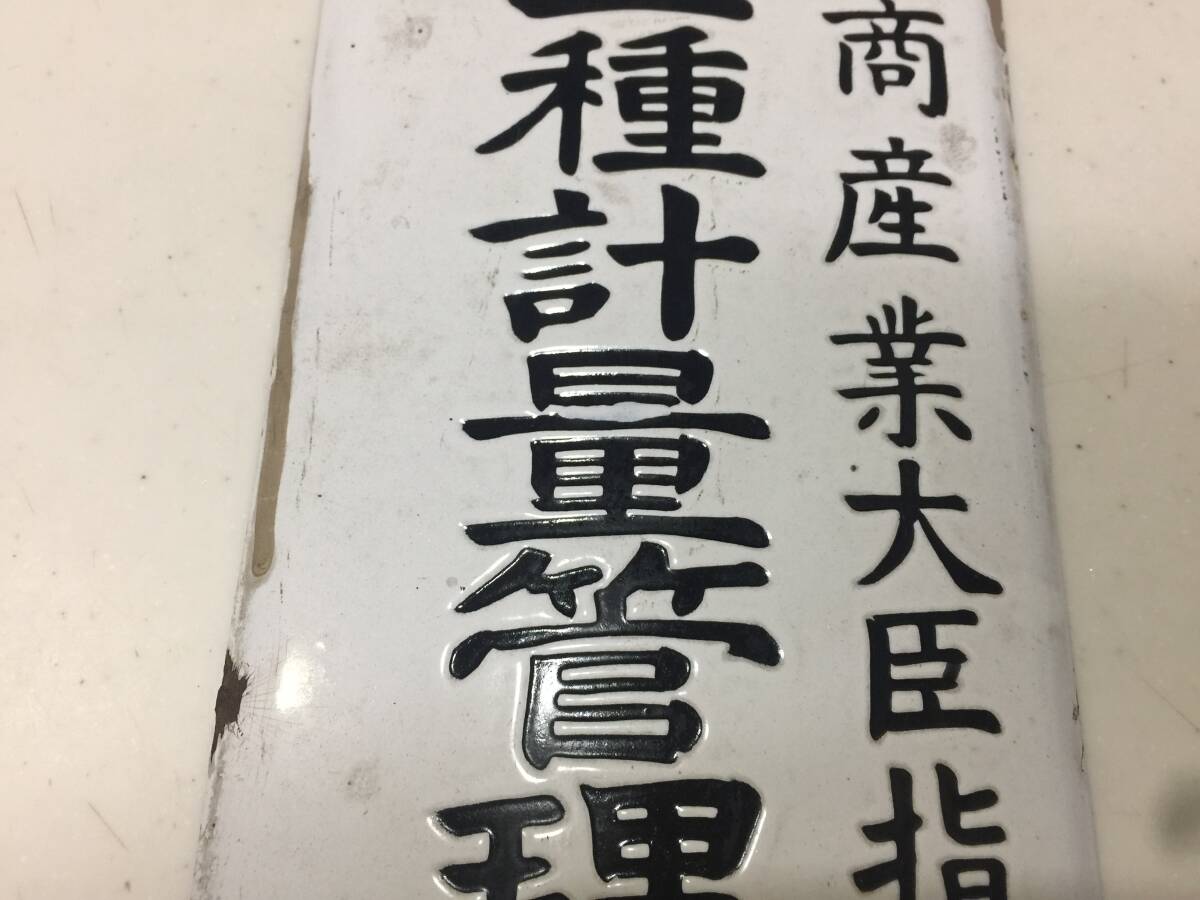 商産業大臣指
種計量管理